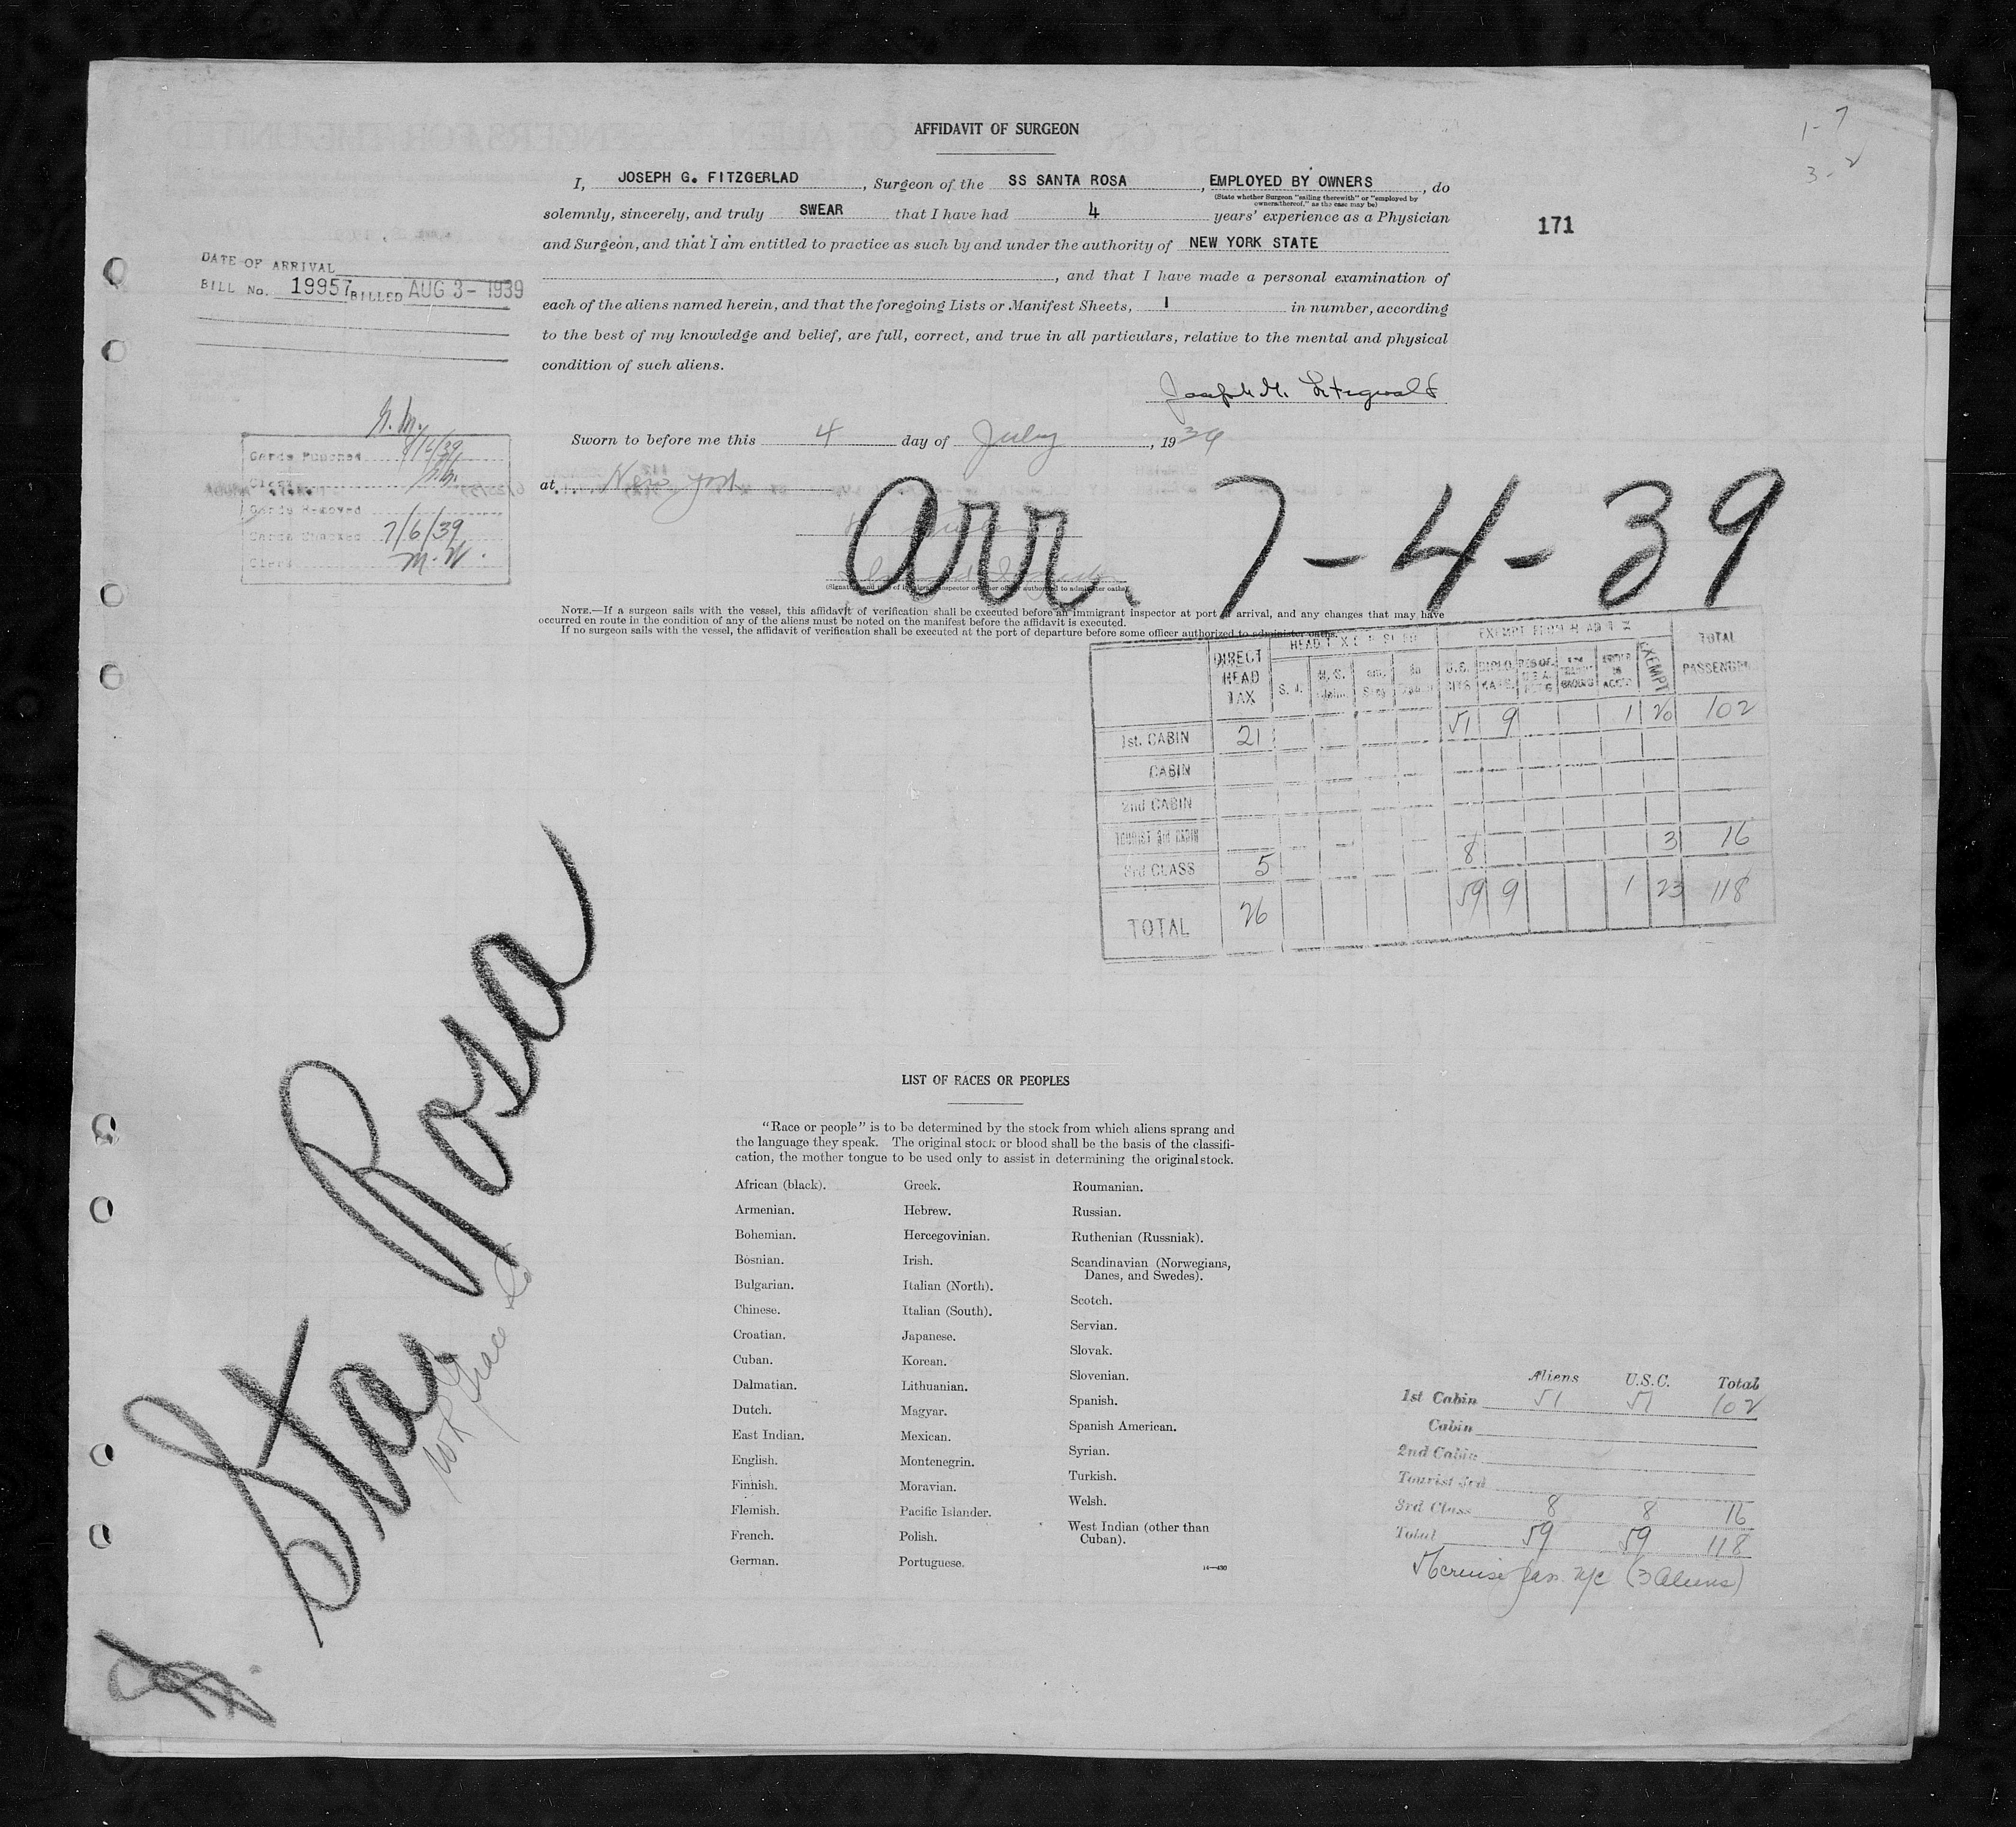 AFFIDAVIT OF SURGEON
1-7
3-2
I, JOSEPH G. FITZGERLAD, Surgeon of the SS SANTA ROSA, EMPLOYED BY OWNERS, do
(State whether Surgeon "sailing therewith" or "employed by
owners thereof," as the case may be)
solemnly, sincerely, and truly SWEAR that I have had 4 years' experience as a Physician
171
and Surgeon, and that I am entitled to practice as such by and under the authority of NEW YORK STATE
, and that I have made a personal examination of
DATE OF ARRIVAL
BILL No. 19957 BILLED AUG 3- 1939
each of the aliens named herein, and that the foregoing Lists or Manifest Sheets, 1 in number, according
to the best of my knowledge and belief, are full, correct, and true in all particulars, relative to the mental and physical
condition of such aliens.
Sworn to before me this 4 day of July, 1939
at New York
arr. 7-4-39
Cards Punched
Clerk
Cards Removed
Cards Checked 7/6/39
Clerk M.W.
NOTE.—If a surgeon sails with the vessel, this affidavit of verification shall be executed before an immigrant inspector at port of arrival, and any changes that may have
occurred en route in the condition of any of the aliens must be noted on the manifest before the affidavit is executed.
If no surgeon sails with the vessel, the affidavit of verification shall be executed at the port of departure before some officer authorized to administer oaths.
EXEMPT FROM HEAD TAX
DIRECT HEAD TAX
U.S. CITS
EXEMPT
TOTAL PASSENGERS
1st. CABIN 21 51 9 1 20 102
CABIN
2nd CABIN
TOURIST 3rd CABIN
3rd CLASS 5 8 3 16
TOTAL 26 59 9 1 23 118
Sta. Rosa
WR Grace Co
LIST OF RACES OR PEOPLES
"Race or people" is to be determined by the stock from which aliens sprang and
the language they speak. The original stock or blood shall be the basis of the classifi-
cation, the mother tongue to be used only to assist in determining the original stock.
African (black).
Armenian.
Bohemian.
Bosnian.
Bulgarian.
Chinese.
Croatian.
Cuban.
Dalmatian.
Dutch.
East Indian.
English.
Finnish.
Flemish.
French.
German.
Greek.
Hebrew.
Hercegovinian.
Irish.
Italian (North).
Italian (South).
Japanese.
Korean.
Lithuanian.
Magyar.
Mexican.
Montenegrin.
Moravian.
Pacific Islander.
Polish.
Portuguese.
Roumanian.
Russian.
Ruthenian (Russniak).
Scandinavian (Norwegians,
Danes, and Swedes).
Scotch.
Servian.
Slovak.
Slovenian.
Spanish.
Spanish American.
Syrian.
Turkish.
Welsh.
West Indian (other than
Cuban).
14—430
Aliens U.S.C. Total
1st Cabin 51 51 102
Cabin
2nd Cabin
Tourist 3rd
3rd Class 8 8 16
Total 59 59 118
56 cruise pass. N/C (3 Aliens)